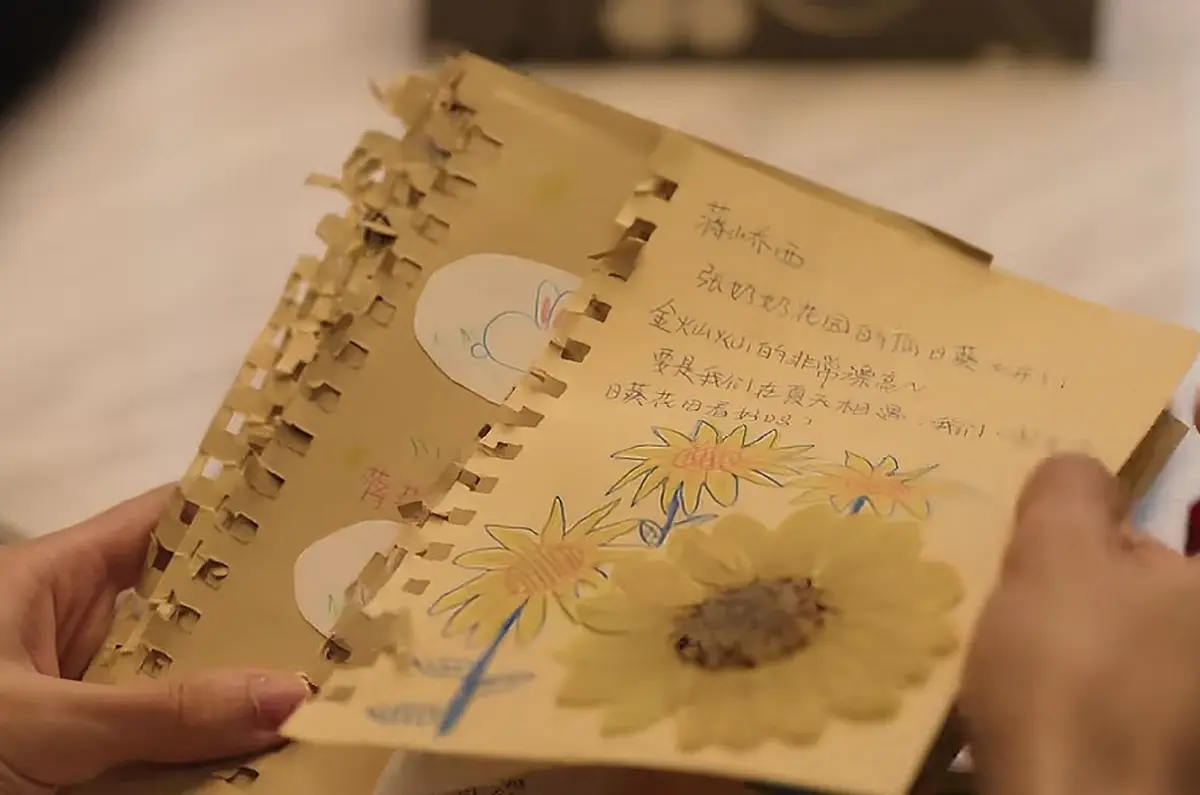 蒋峤西
张奶奶花园的向日葵开了
金灿灿的非常漂亮~
要是我们在夏天相遇,我们
日葵花田看好吗?
蒋